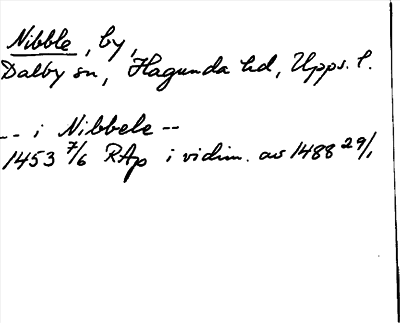 Nibble, by,
Dalby sn, Hagunda hd, Upps. l.
-- i Nibbele --
1453 7/6 RAp i vidim. av 1488 29/1